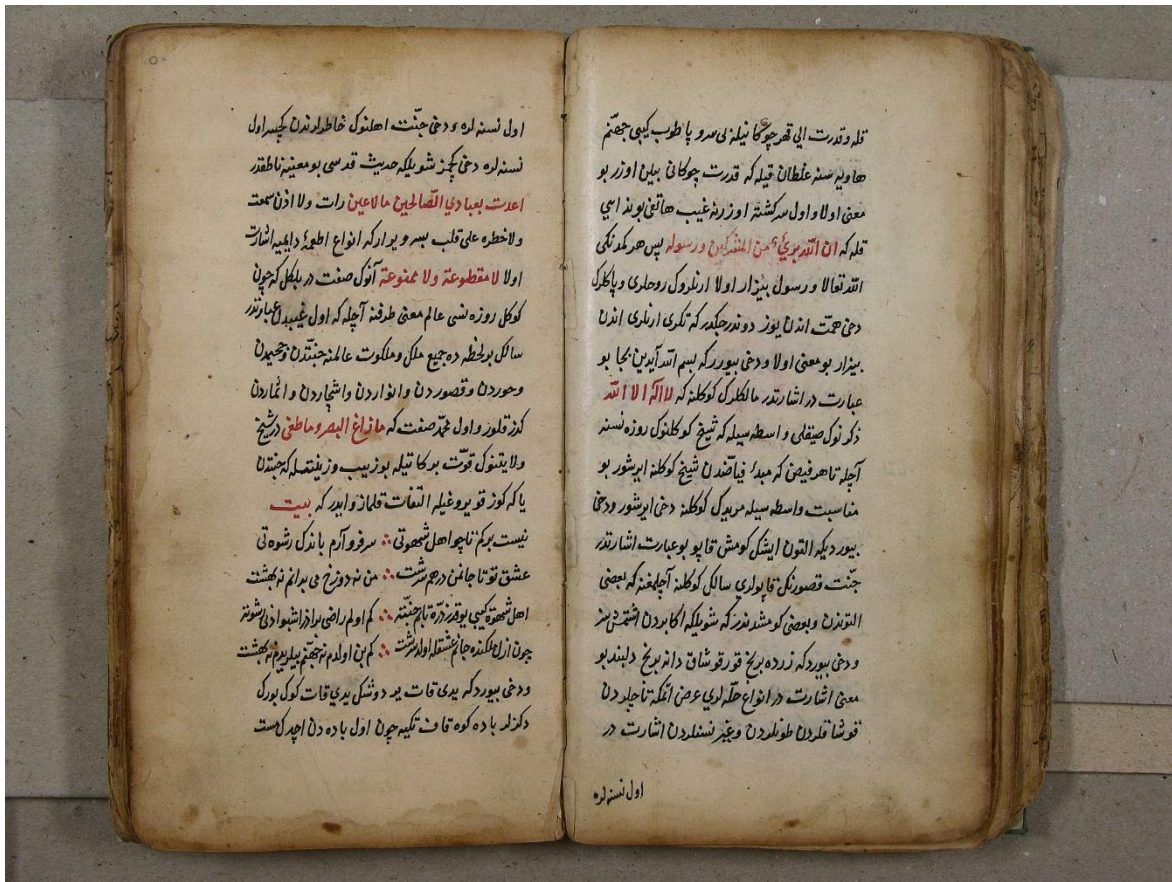 قله و قدرت الی قهر چوکانیله بی سر و پا طوب کیبی جهنم
هاویه سنه غلطان قیله که قدرت چوکانی بیلن اوزر بو
معنی اولا و اول سرکشته اوزرنه غیب هاتفی بو ند اسی
قله که ان الله بریٔ من المشرکین و رسوله پس هر کمدنکی
الله تعالا و رسول بیزار اولا ارنلروک روحلری و پاکلرک
دخی همت اندن یوز دوندرجکدر که تکری ارنلری اندن
بیزار بو معنی اولا و دخی بیورر که بسم الله آیدین بجا بو
عبارت در اشارتدر سالکلرک کوکلنه که لا اله الا الله
ذکرنوک صیقلی واسطه سیله که شیخ کوکلنوک روزه نسنه
آچله تا هر فیض که مبدٔ فیاضدن شیخ کوکلنه ایرشور بو
مناسبت واسطه سیله مریدک کوکلنه دخی ایرشور و دخی
بیورد یکه التون ایشک کومش قاپو بو عبارت اشارتدر
جنت قصورنک قاپولری سالک کوکلنه آچلمغنه که بعضی
التوندن و بعضی کومشدندر که شویلکه اکابردن اشتمش
و دخی بیوردکه زرده برنج قورقوشاق دانه برنج دلبند بو
معنی اشارت در انواع حله لری عرض اتمکه تاجلردن
قوشاقلردن طونلردن و غیر نسنلردن اشارت در
اول نسنه لره
اول نسنه لره و دخی جنت اهلنوک خاطرلرندن کچسه اول
نسنه لره دخی کچز شویلکه حدیث قدسی بو معنیه ناطقدر
اعدت بعبادي الصالحین ما لا عین رات ولا اذن سمعت
ولا خطره علی قلب بسر و یرار که انواع اطعمهٔ دایمیه اشارت
اولا لا مقطوعة ولا ممنوعة آنوک صفت در بلکل که چون
کوکل روزه نسی عالم معنی طرفنه آچله که اول غیبدن عبارتدر
سالک بر لحظه ده جمیع ملک و ملکوت عالمنه جنتدن و جحیمدن
و حوردن و قصوردن و انواردن و اشجاردن و انماردن
کذر قلور و اول محمد صفت که ما زاغ البصر و ما طغی در شیخ
ولایتنوک قوت برکاتیله بو زیب و زینتسله که جنتدن
یا که کوز قویروغیله التفات قلماز و ایدر که بیت
نیست برکم تا چو اهل شهوتی ∴ سر فرو آرم باندک رشوه تی
عشق تو تا جانمن درهم سرشت ∴ من نه دوزخ می بدانم نه بهشت
اهل شهوة کیبی یوقدر ذره تابم جنته ∴ کم اولم راضی برادر اشبو ادنی رشوته
چون ازل ملکنده جانم عشقله اولد سرشت ∴ کم بن اولدم نه جهنم بیلورم نه بهشت
و دخی بیوردکه یدی قات یر دوشک یدی قات کوک یورک
دکزلر باده کوه قاف تکیه چون اول باده دن اچدک مست